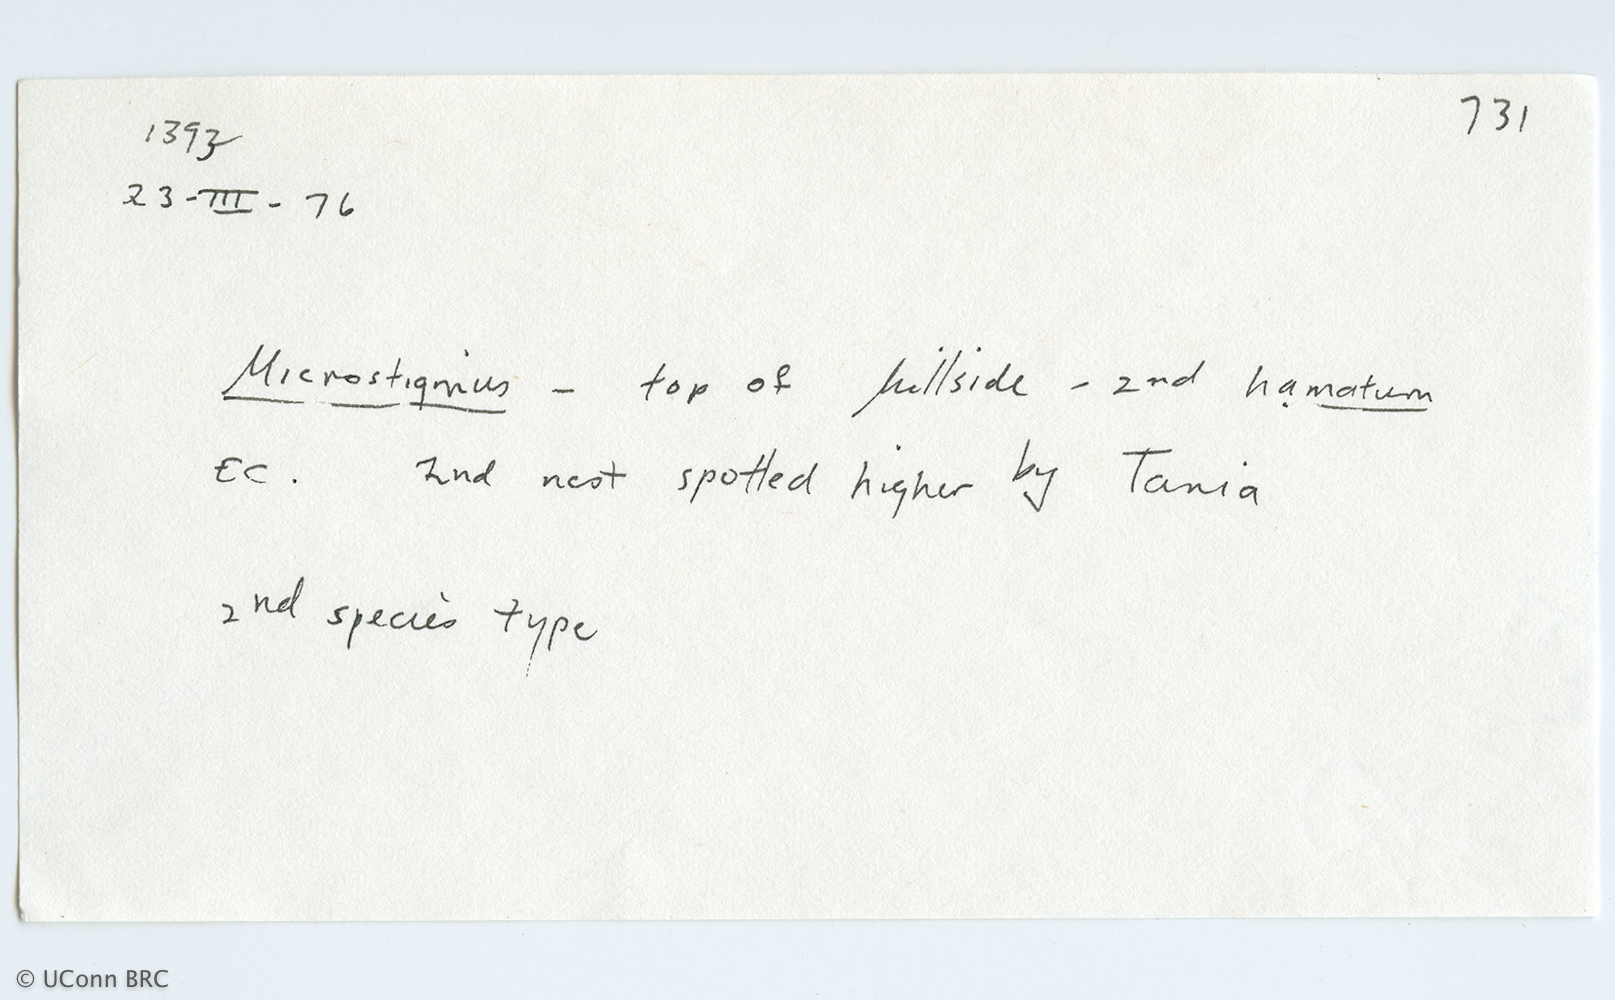 1393
731
23-III-76
Microstigmus - top of hillside - 2nd hamatum
EC. 2nd nest spotted higher by Tania
2nd species type
© UConn BRC